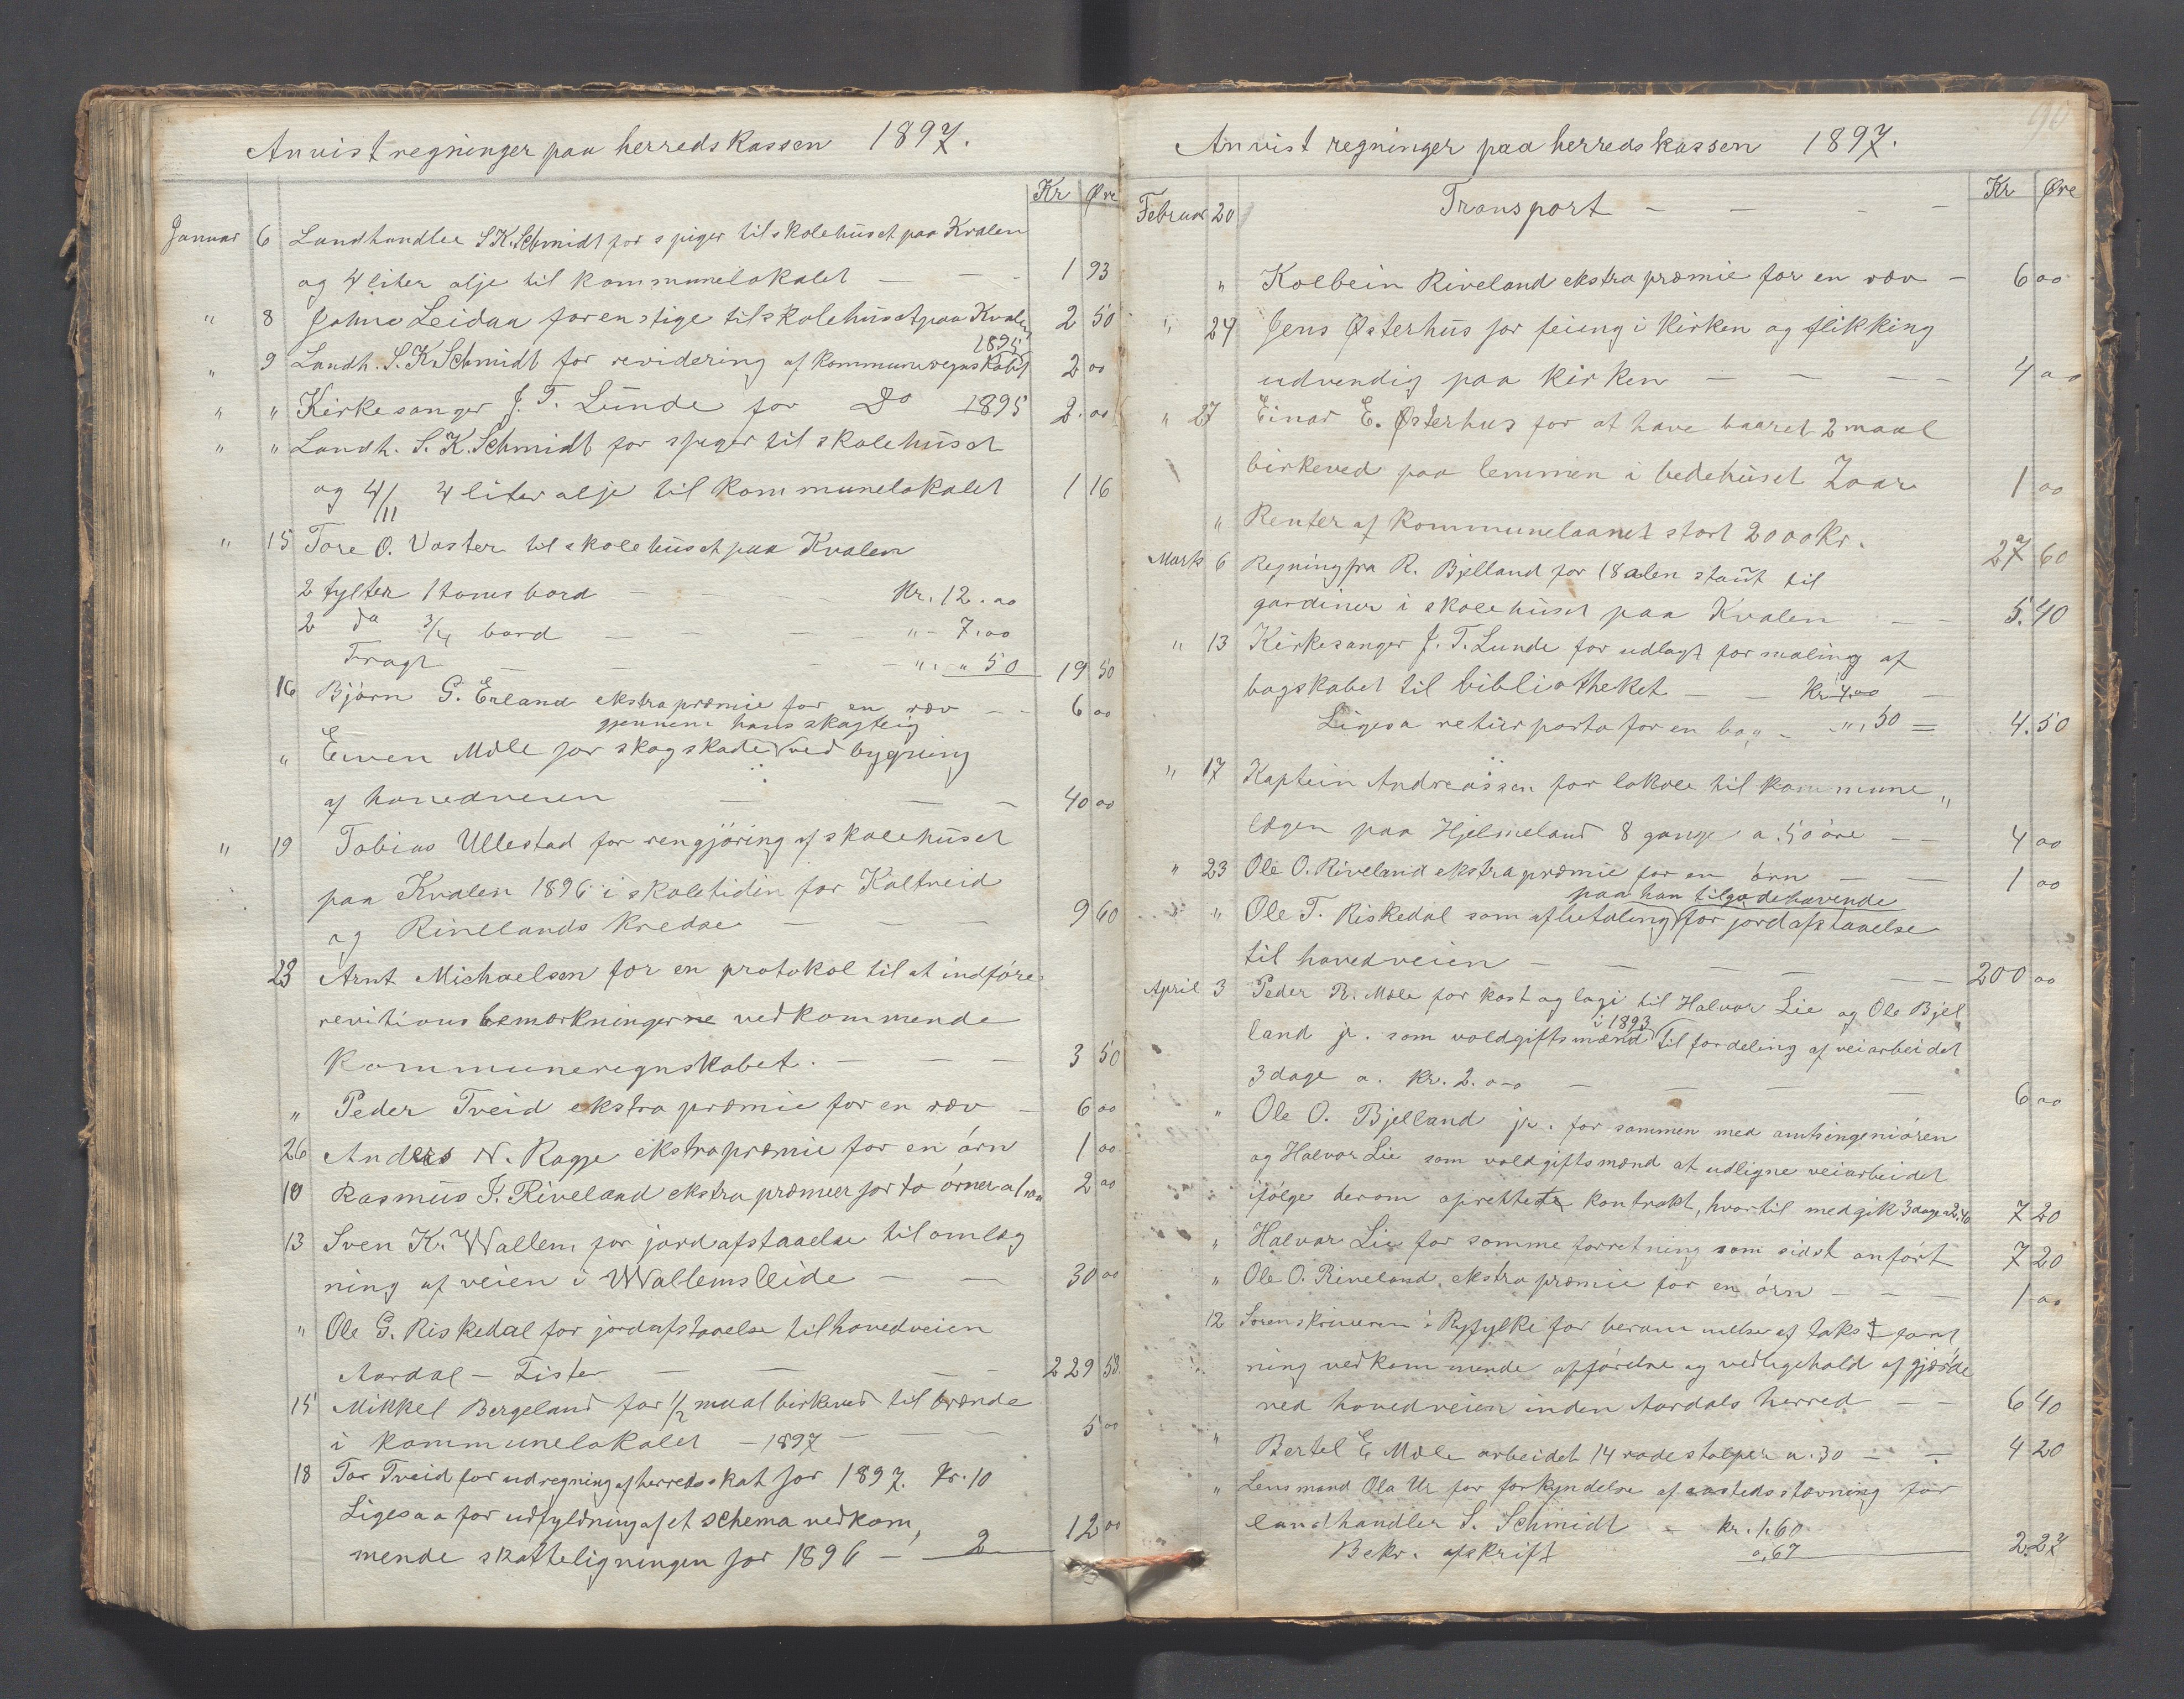 Anvist regninger paa herredskassen 1897.
Kr Øre
Januar 6 Landhandler S. K. Schmidt for spiger til skolehuset paa Kvalen
og 4 liter olje til kommunelokalet — — - 1 93
" 8 Johne Leidaa for en stige til skolehuset paa Kvalen 2 50
1895
" 9 Landh. S. K Schmidt for revidering af kommuneregnskabet 2 00
" " Kirkesanger J. T. Lunde for Do 1895 2.00
" " Landh. S. K. Schmidt for spiger til skolehuset
og 4/11 4 liter olje til kommunelokalet 1 16
" 15 Tore O. Vaster til skolehuset paa Kvalen
2 tylter 1 toms bord — — — Kr. 12.00
2 do 3/4 bord — — — — " - 7.00
Fragt — — — — ". " 50 19 50
16 Bjørn G. Erland ekstrapræmie for en ræv — - 6 00
gjennem hans skogteig
" Even Mæle for skogskade ved bygning
af hovedveien — — — 40 00
" 19 Tobias Ullestad for rengjøring af skolehuset
paa Kvalen 1896 i skoletiden for Kaltveid
og Rivelands kredse — — — 9 60
23 Arnt Michaelsen for en protokol til at indføre
revitionsbemærkningerne vedkommende
Kommuneregnskabet. — — — 3 50
" Peder Tveid ekstrapræmie for en ræv — 6 00
26 Anders N. Ragge ekstrapræmie for en ørn 1 00
10 Rasmus T. Riveland ekstrapræmier for to ørner a 1 00 2 00
13 Sven K. Wallem for jordafstaaelse til omlæg
ning af veien i Wallemsleide — — 30 00
" Ole G. Riskedal for jordafstaaelse til hovedveien
Aardal — Fister — — — 229 53
15 Mikkel Bergeland for 1/2 maal birkeved til brænde
i kommunelokalet — 1897 — — — 5 00
18 Tor Tveid for udregning af herredsskat for 1897. Kr. 10
Ligesaa for udfyldning af et schema vedkom,
mende skatteligningen for 1896 — 2 12 00
90
Anvist regninger paa herredskassen 1897.
Kr Øre
Februar 20 Transport — — — —
" Kolbein Riveland ekstrapræmie for en ræv — 6 00
" 24 Jens Østerhus for feiing i kirken og flikking
udvendig paa kirken — — — — 4 00
" 27 Einar E. Østerhus for at have baaret 2 maal
birkeved paa lemmen i bedehuset Zoar 1 00
" Renter af kommunelaanet stort 2000 Kr. 27 60
Marts 6 Regning fra R. Bjelland for 18 alen staut til
gardiner i skolehuset paa Kvalen — — 5.40
" 13 Kirkesanger J. T. Lunde for udlagt for maling af
bogskabet til bibliotheket — — Kr 4.00 —
Ligesa returporto for en bog - - ". 50 = 4.50
" 17 Kaptein Andreassen for lokale til kommune"
lægen paa Hjelmeland 8 gange a. 50 øre — — 4 00
" 23 Ole O. Riveland ekstrapræmie for en ørn — — 1 00
paa han tilgodehavende
" " Ole T. Riskedal som afbetaling for jordafstaaelse
til hovedveien — — — — — 200 00
April 3 Peder R. Mæle for kost og logi til Halvor Lie og Ole Bjel"
i 1893
land jr. som voldgiftsmænd til fordeling af veiarbeidet
3 dage a. Kr. 2.00 — — — — 6 00
" Ole O. Bjelland jr. for sammen med amtsingeniøren
og Halvor Lie som voldgiftsmænd at udligne veiarbeidet
ifølge derom oprettede kontrakt, hvortil medgik 3 dage a 2,40 7 20
" Halvor Lie for samme forretning som sidst anført 7 20
" Ole O. Riveland ekstrapræmie for en ørn — — — 1 00
12 Sorenskriveren i Ryfylke for berammelse af takst forret
ning vedkommende opførelse og vedligehold af gjærde
ved hovedveien inden Aardals herred — — 6 40
" Bertel E Mæle arbeidet 14 rodestolper a. 30 — — 4 20
" Lensmand Ola Ur for forkyndelse af aastedsstævning for
landhandler S. Schmidt - Kr. 1.60
Bekr. afskrift 0,67 2.27